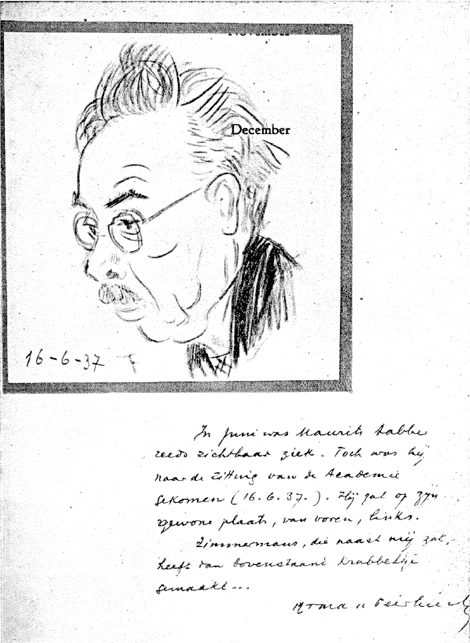 November
December
16-6-37
In Juni was Maurits Sabbe
reeds zichtbaar ziek. Toch was hij
naar de zitting van de Academie
gekomen (16.6.37.). Hij zat op zijn
gewone plaats, van voren, links.
Zimmermans, die naast mij zat,
heeft dan bovenstaand krabbeltje
gemaakt...
Herman Teirlinck